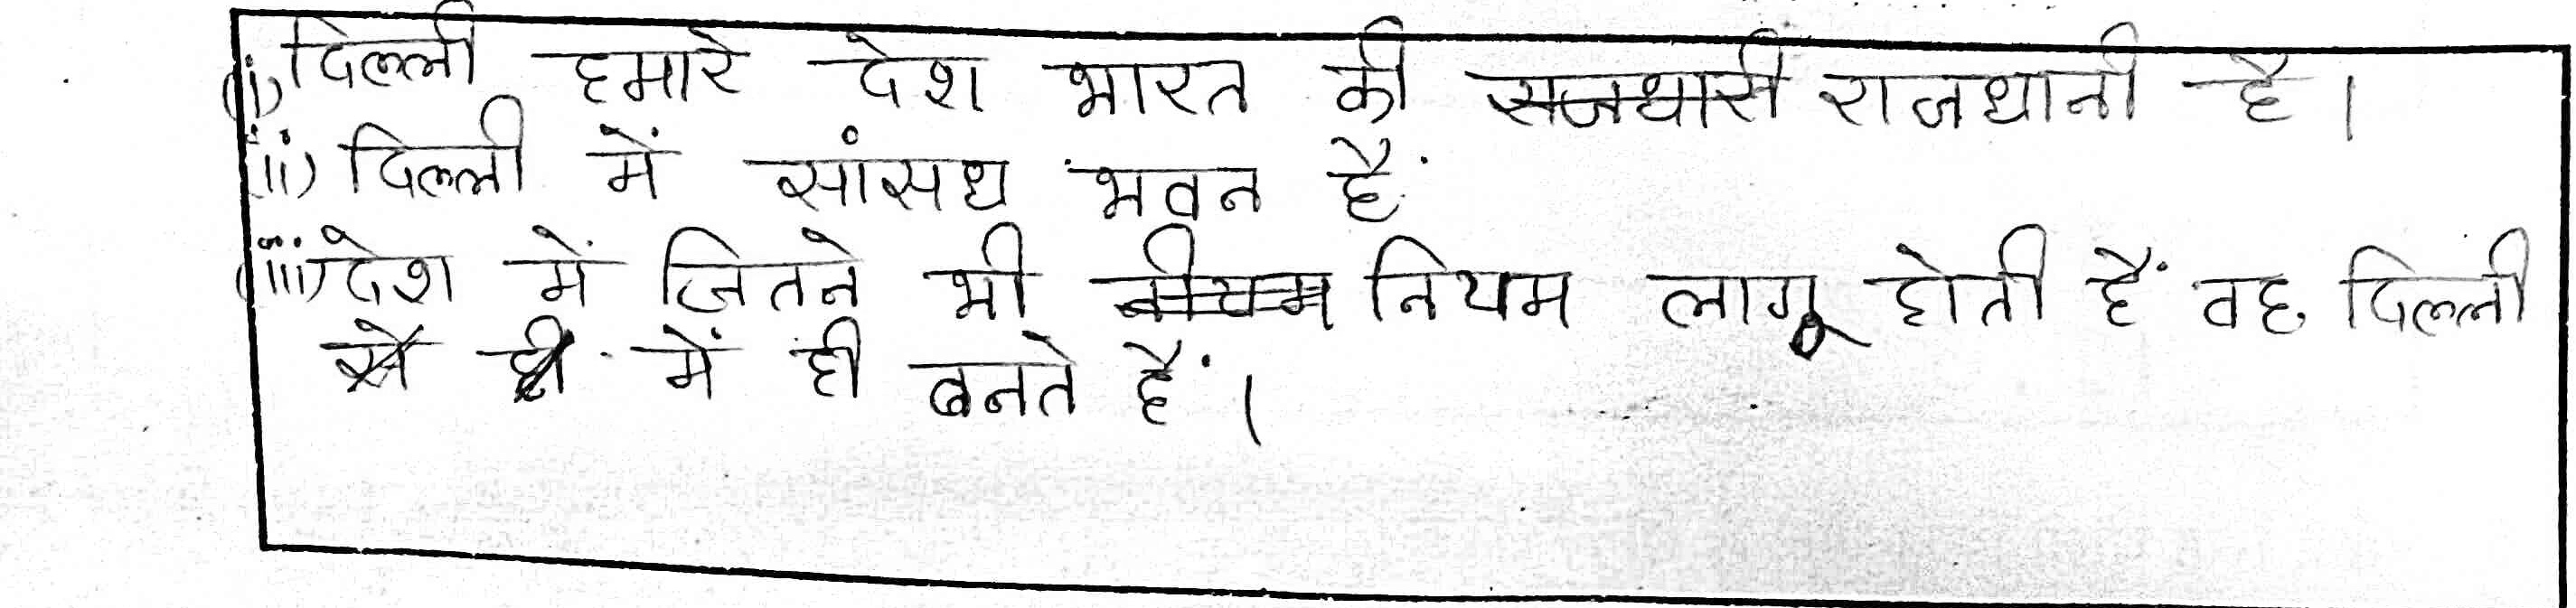 (i) दिल्ली हमारे देश भारत की राजधानी है।
(ii) दिल्ली में सांसध भवन है
(iii) देश में जितने भी नियम लागू होती हैं वह दिल्ली
में ही बनते हैं।